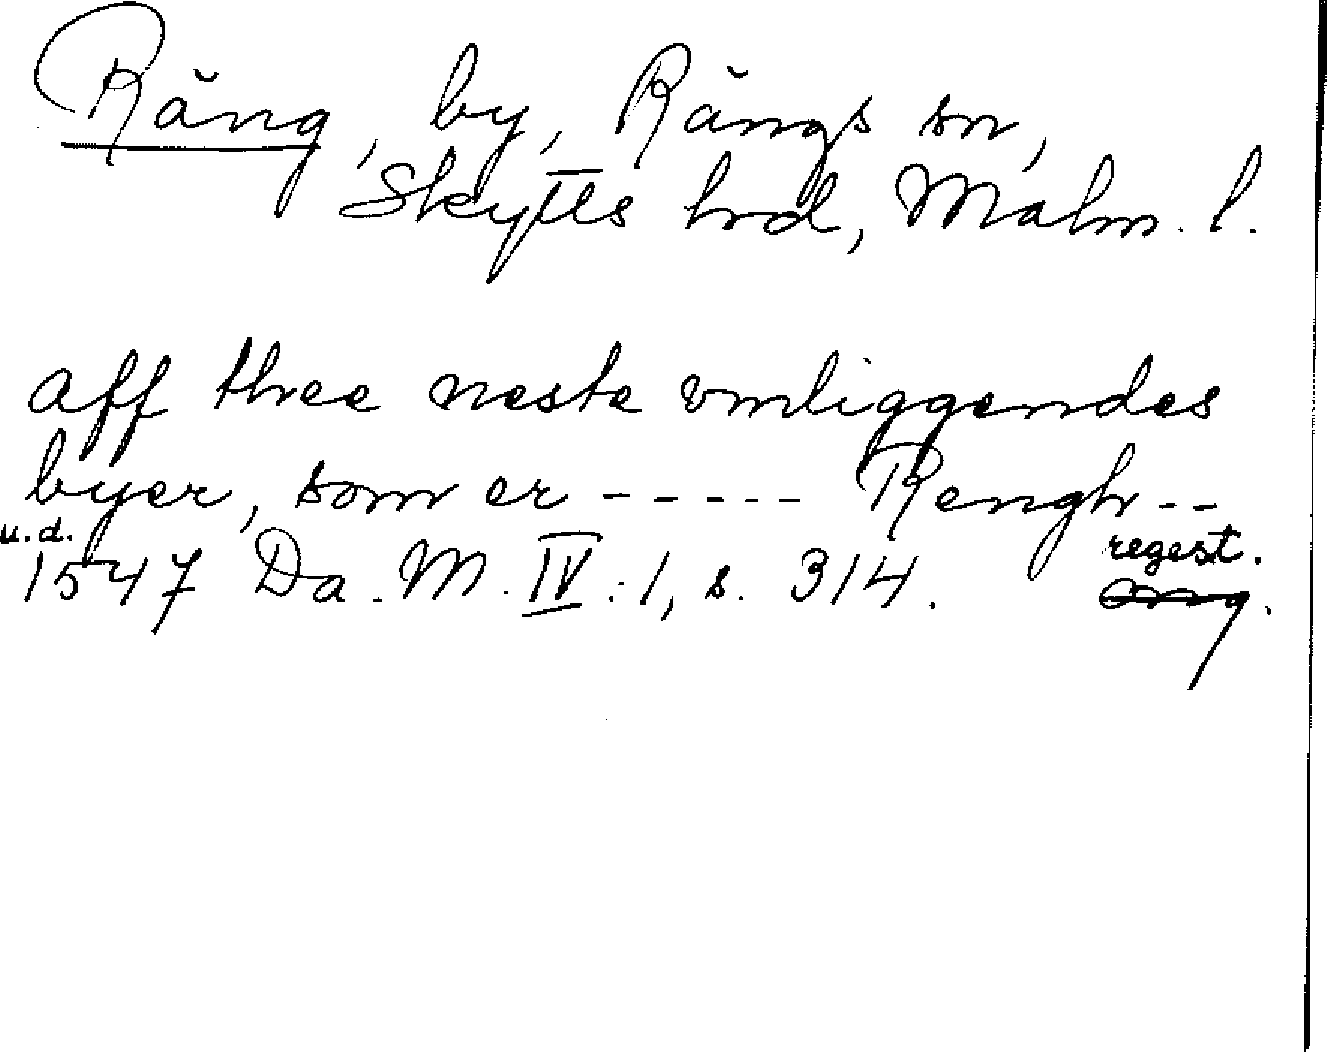 Räng, by, Rängs sn,
Skytts hrd, Malm. l.
aff three neste vmliggendes
byer, som er ----- Rengh --
u.d.
1547 Da. M. IV : 1, s. 314. regest.